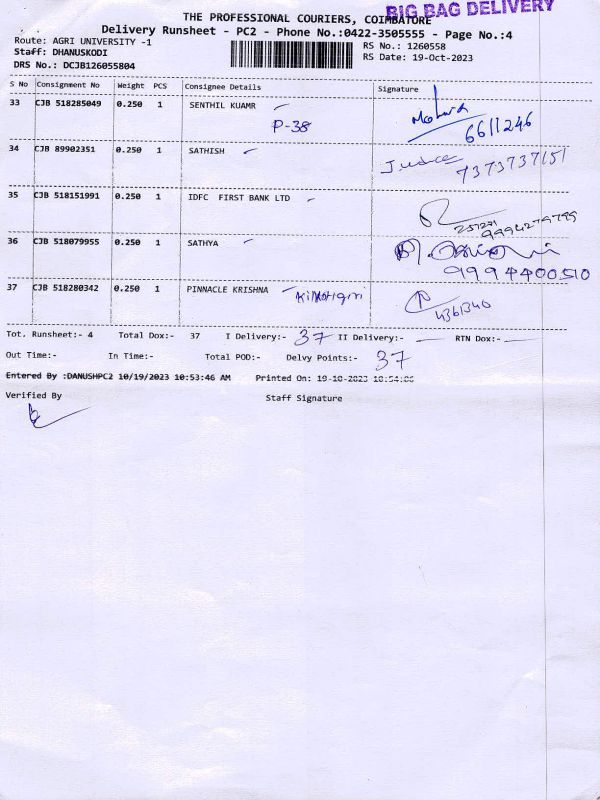 BIG BAG DELIVERY
THE PROFESSIONAL COURIERS, COIMBATORE
Delivery Runsheet - PC2 - Phone No.:0422-3505555 - Page No.:4
Route: AGRI UNIVERSITY -1 RS No.: 1260558
Staff: DHANUSKODI RS Date: 19-Oct-2023
DRS No.: DCJB126055804
S No Consignment No Weight PCS Consignee Details Signature
33 CJB 518285049 0.250 1 SENTHIL KUAMR
P-38 6611246
34 CJB 89902351 0.250 1 SATHISH
7373737151
35 CJB 518151991 0.250 1 IDFC FIRST BANK LTD
36 CJB 518079955 0.250 1 SATHYA
9994400510
37 CJB 518280342 0.250 1 PINNACLE KRISHNA
4361340
Tot. Runsheet:- 4 Total Dox:- 37 I Delivery:- 37 II Delivery:- — RTN Dox:- —
Out Time:- In Time:- Total POD:- Delvy Points:- 37
Entered By :DANUSHPC2 10/19/2023 10:53:46 AM Printed On: 19-10-2023 10:54:06
Verified By Staff Signature